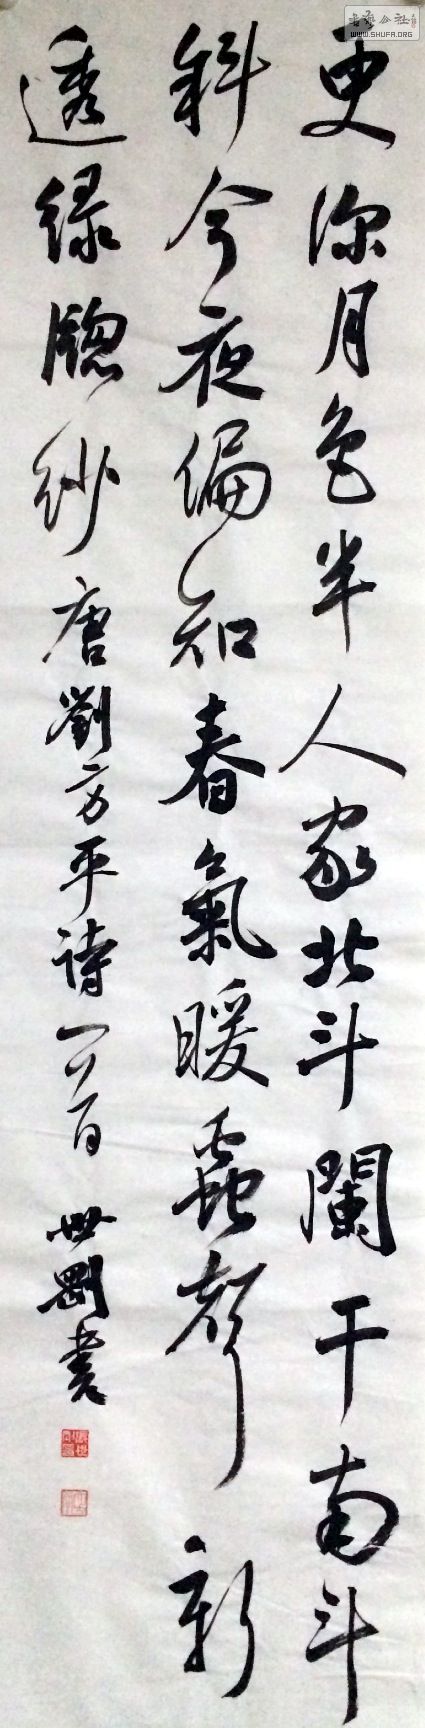 更深月色半人家北斗闌干南斗
斜今夜偏知春氣暖蟲聲新
透綠牕紗唐劉方平詩一首
世剛書
WWW.SHUFA.ORG